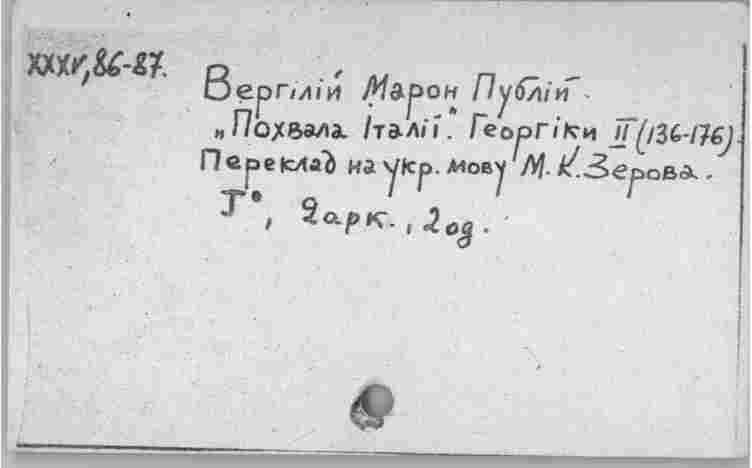 XXXV, 86-87.
Вергілій Марон Публій.
„Похвала Італії". Георгіки II (136-176).
Переклад на укр. мову М. К. Зерова.
Т°, 2 арк., 2 од.